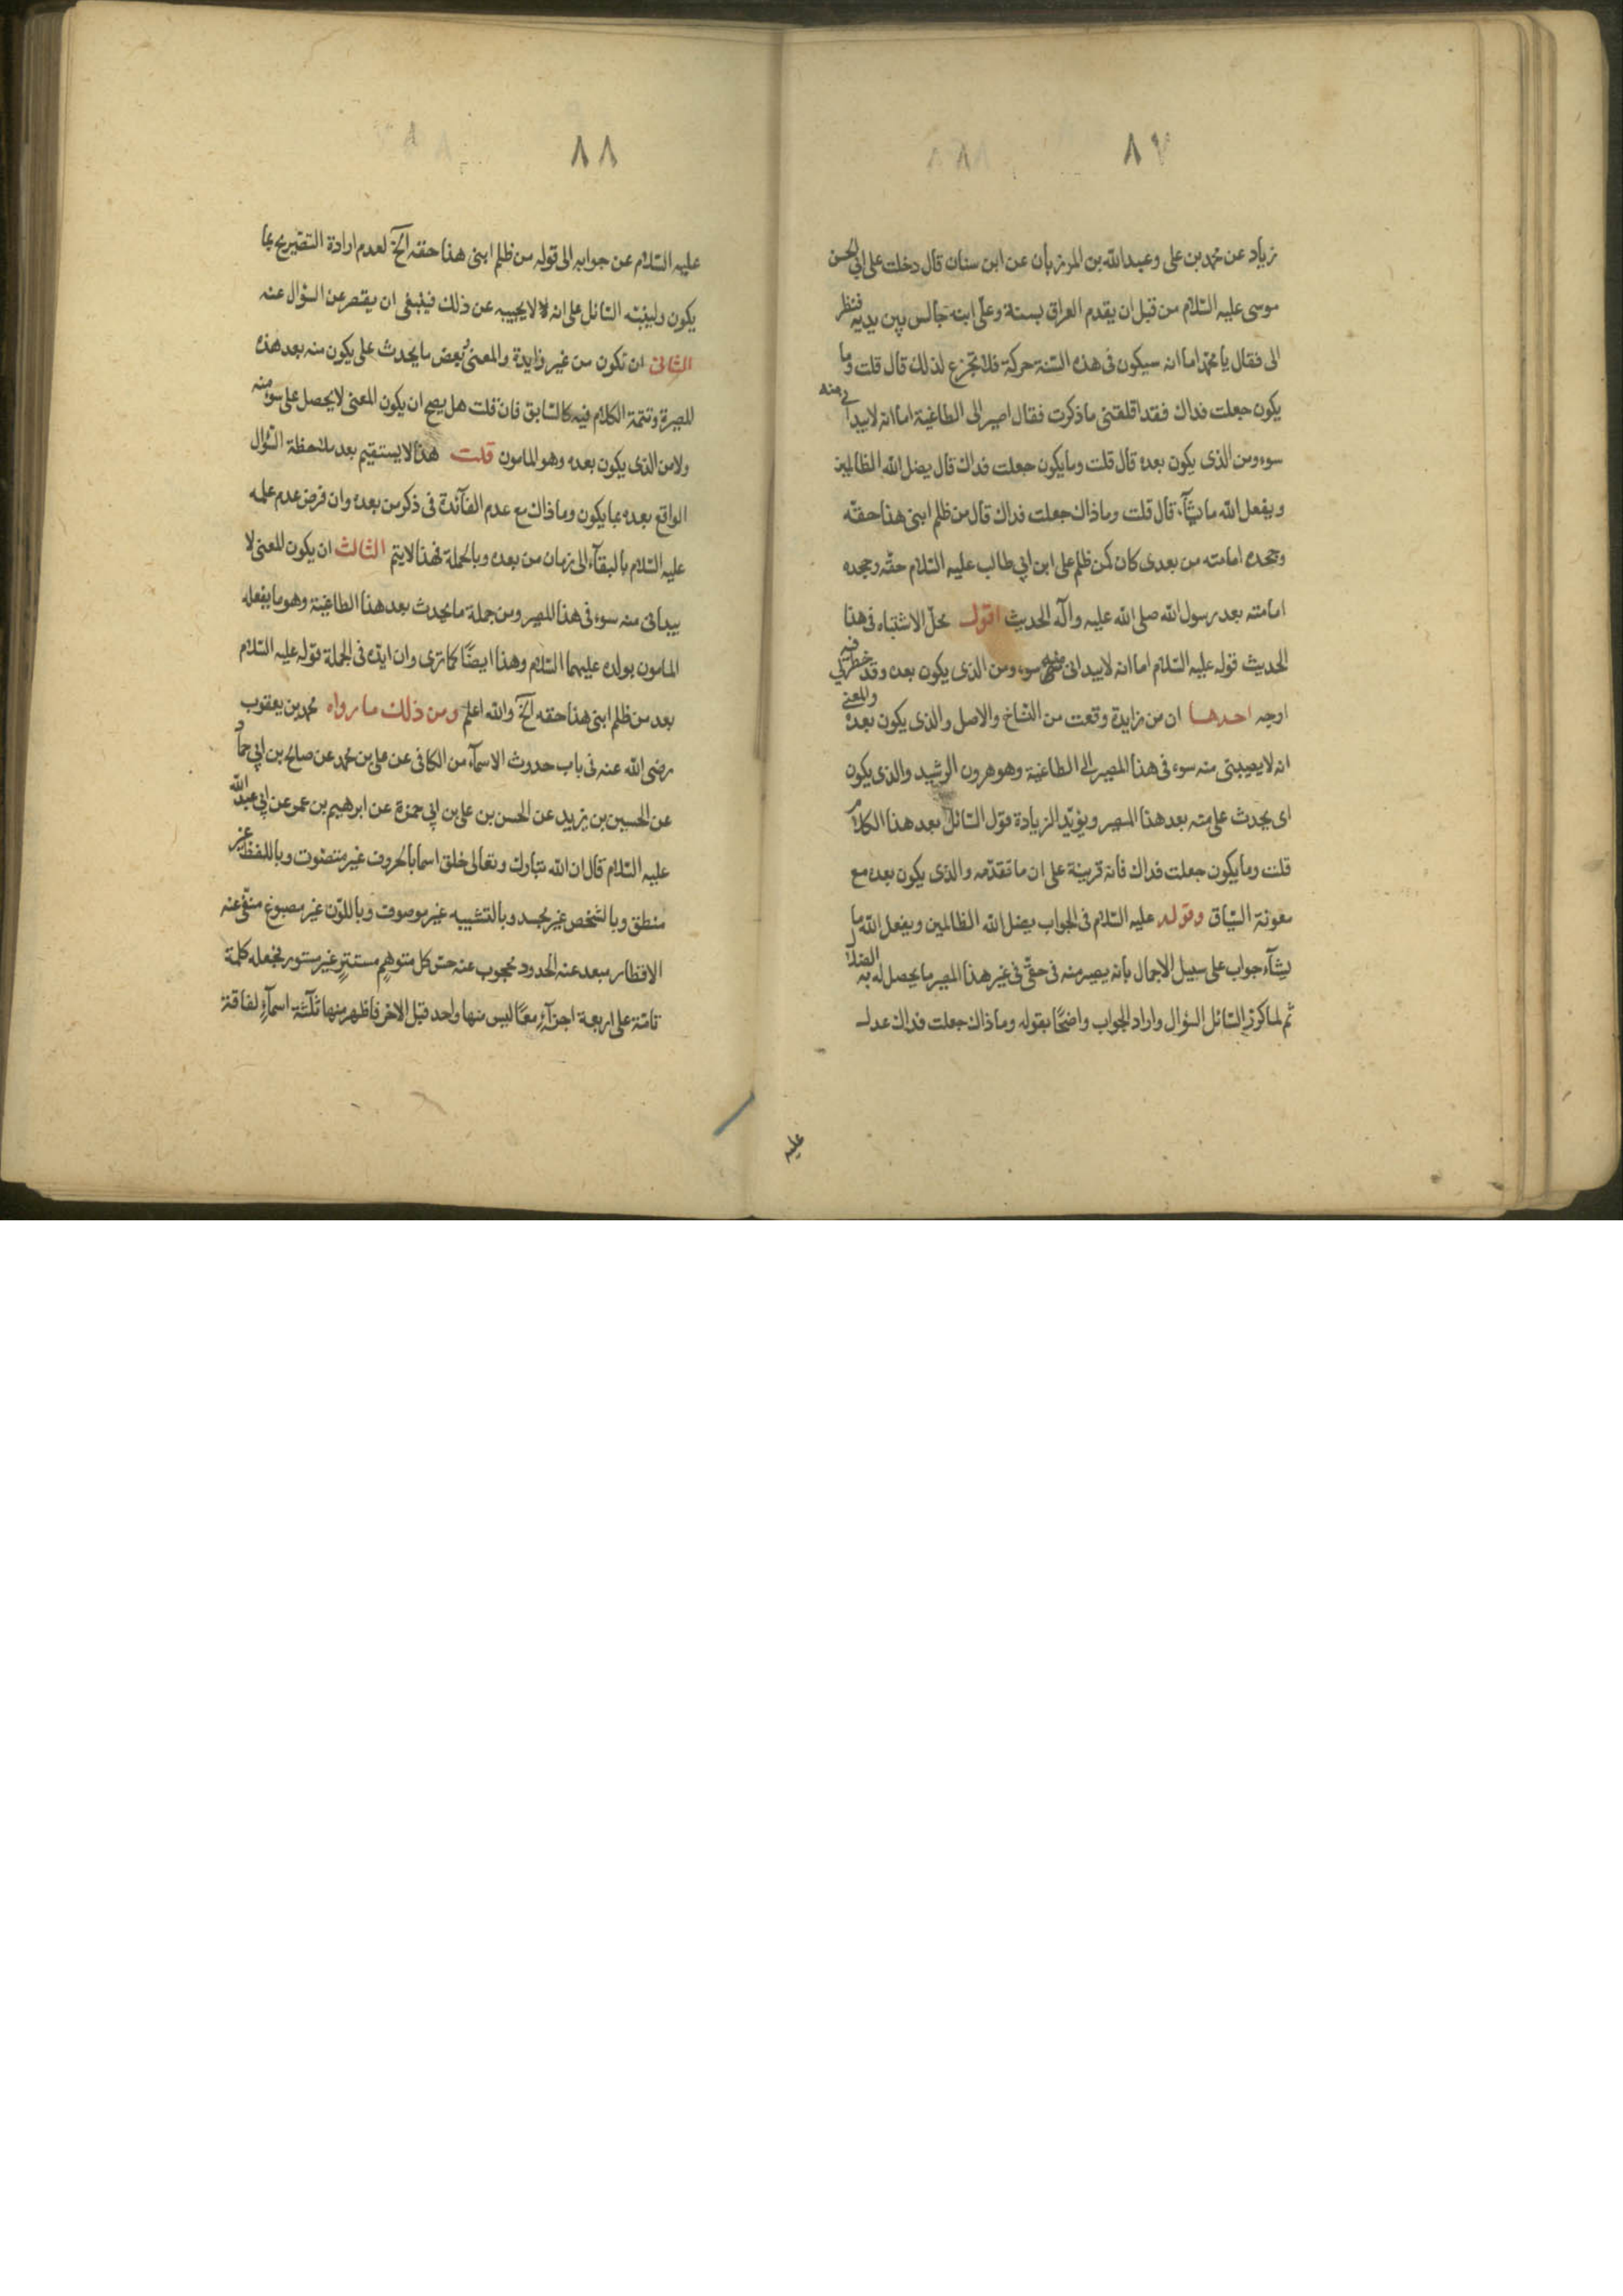 ٨٧
زياد عن محمد بن على وعبد الله بن المرزبان عن ابن سنان قال دخلت على ابي الحسن
موسى عليه السّلام من قبل ان يقدم العراق بسنة وعلىّ ابنه جالس بين يديه فنظر
الى فقال يا محمّد اما انه سيكون فى هذه السّنة حركة فلا تجزع لذلك قال قلت وما
يكون جعلت فداك فقد اقلقتنى ما ذكرت فقال اصير الى الطاغية اما انه لا يبدانى منه
سوء ومن الذى يكون بعده قال قلت وما يكون جعلت فداك قال يضل الله الظالمين
ويفعل الله ما يشآء قال قلت وما ذاك جعلت فداك قال من ظلم ابنى هذا حقّه
وجحده امامته من بعدى كان كمن ظلم على ابن ابي طالب عليه السّلام حقّه وجحده
امامته بعد رسول الله صلى الله عليه وآله الحديث اقول محلّ الاشتباه فى هذا
الحديث قوله عليه السّلام اما انه لا يبدانى منه سوء ومن الذى يكون بعده وقد خطر لي فيه
اوجه احدها ان من زايدة وقعت من النسّاخ والاصل والذى يكون بعده والمعنى
انه لا يصيبنى منه سوء فى هذا المصير الى الطاغية وهو هرون الرشيد والذى يكون
اى يحدث علىّ منه بعد هذا المصير ويؤيّد الزيادة قول السّائل بعد هذا الكلام
قلت وما يكون جعلت فداك فانه قرينة على ان ما تقدّمه والذى يكون بعده مع
معونة السّياق وقوله عليه السّلام فى الجواب يضل الله الظالمين ويفعل الله ما
يشآء جواب على سبيل الاجمال بانه يصير منه فى حقّى فى غير هذا المصير ما يحصل له به الضلال
ثم لما كرر السّائل السؤال واراد الجواب واضحًا بقوله وما ذاك جعلت فداك عدل
عليه
٨٨
عليه السّلام عن جوابه الى قوله من ظلم ابنى هذا حقه الخ لعدم ارادة التصريح بما
يكون ولينبّه السّائل على انه لا يجيبه عن ذلك فينبغى ان يقصر عن السؤال عنه
الثانى ان تكون من غير زايدة والمعنى بعض ما يحدث على يكون منه بعد هذه
المصيرة وتتمة الكلام فيه كالسّابق فان قلت هل يصح ان يكون المعنى لا يحصل على سوء منه
ولا من الذى يكون بعده وهو المامون قلت هذا لا يستقيم بعد ملاحظة السّؤال
الواقع بعده بما يكون وما ذاك مع عدم الفآئدة فى ذكر من بعده وان فرض عدم علمه
عليه السّلام بالبقآء الى زمان من بعده وبالجملة فهذا لا يتم الثالث ان يكون المعنى لا
يبدانى منه سوء فى هذا المصير ومن جملة ما يحدث بعد هذا الطاغية وهو ما يفعله
المامون بولده عليهما السّلام وهذا ايضًا كما ترى وان ايّده فى الجملة قوله عليه السّلام
بعد من ظلم ابنى هذا حقه الخ والله اعلم ومن ذلك ما رواه محمد بن يعقوب
رضى الله عنه فى باب حدوث الاسمآء من الكافى عن على بن محمد عن صالح بن ابي حمّاد
عن الحسين بن يزيد عن الحسن بن على بن ابي حمزة عن ابرهيم بن عمر عن ابي عبد الله
عليه السّلام قال ان الله تبارك وتعالى خلق اسما بالحروف غير متصّوت وباللفظ غير
منطق وبالشخص غير مجسد وبالتشبيه غير موصوف وباللّون غير مصبوغ منفىّ عنه
الاقطار مبعد عنه الحدود محجوب عنه حسّ كل متوهمٍ مستترٍ غير مستور فجعله كلمة
تامّة على اربعة اجزآءٍ معًا ليس منها واحد قبل الاخر فاظهر منها ثلثة اسمآءٍ لفاقة